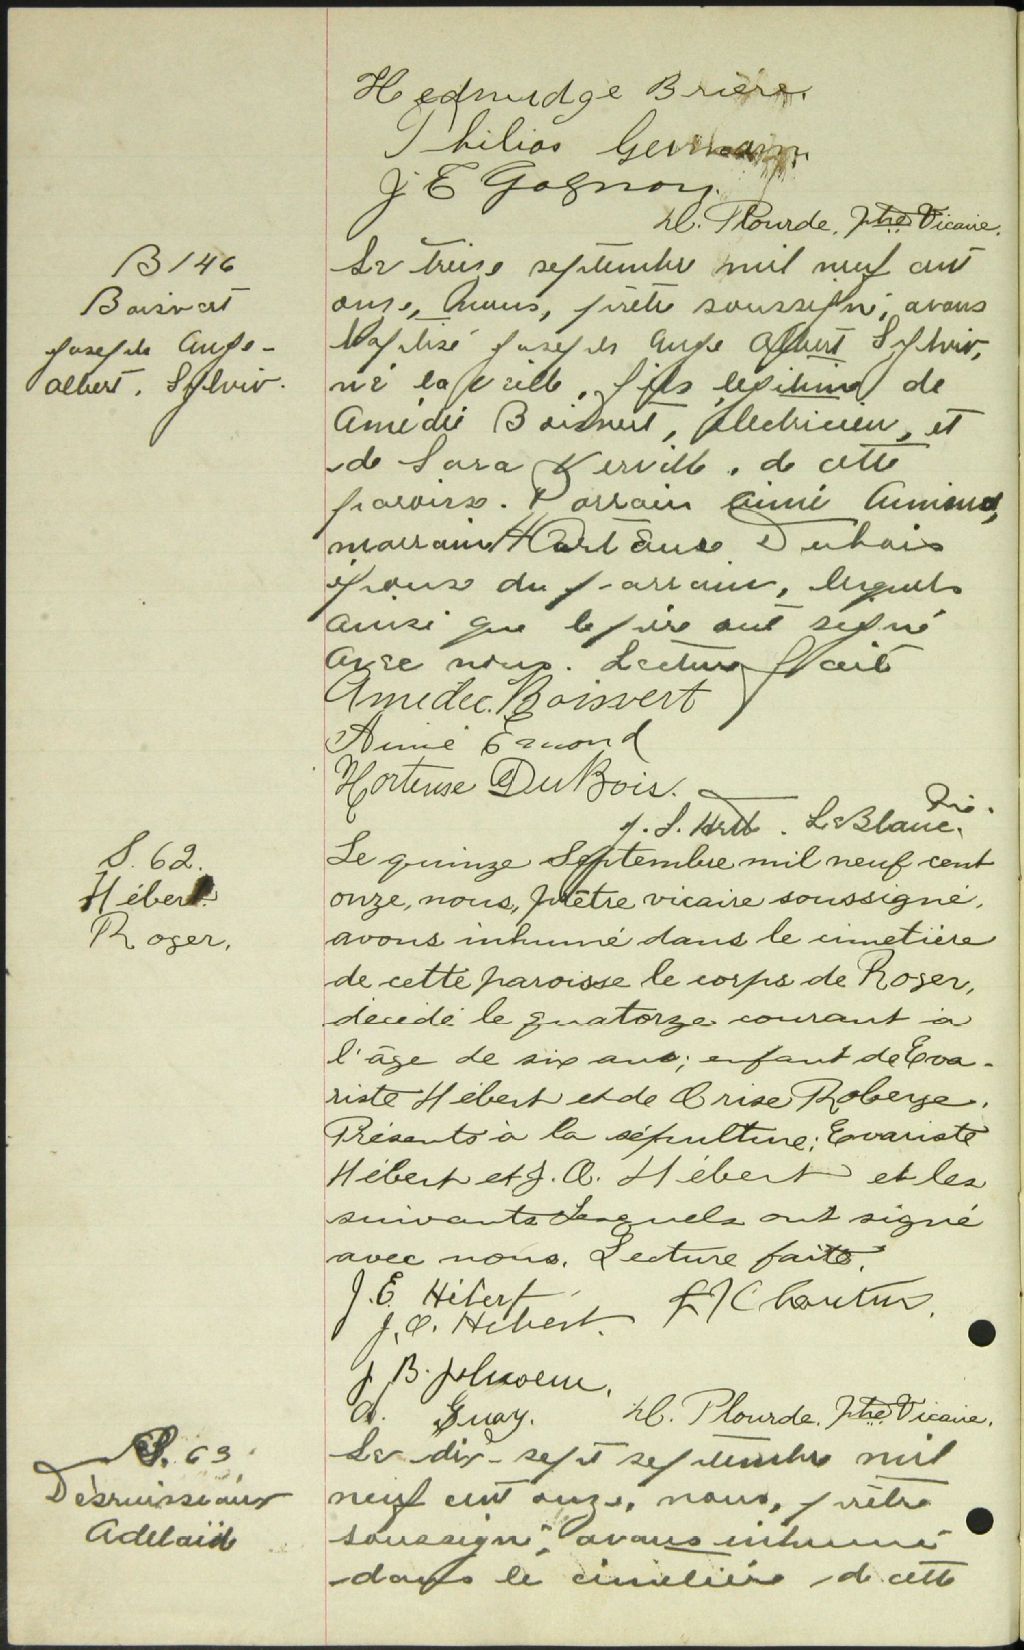 Hedwidge Brière.
Philias Germain
J E Gagnon.
H. Plourde, Ptre Vicaire.
B 146
Boisvert
Joseph Ange-
Albert. Sylvio.
Le treize septembre mil neuf cent
onze, nous, prêtre soussigné, avons
baptisé Joseph Ange Albert Sylvio,
né la veille, fils légitime de
Amédée Boisvert, électricien, et
de Sara Kerville, de cette
paroisse. Parrain Aimé Aumond,
marraine Hortense Dubois
épouse du parrain, lesquels
ainsi que le père ont signé
avec nous. Lecture faite
Amedee Boisvert
Aimé Emond
Hortense DuBois.
J. S. LeBlanc,
S. 62.
Hébert
Roger.
Le quinze Septembre mil neuf cent
onze, nous, prêtre vicaire soussigné,
avons inhumé dans le cimetière
de cette paroisse le corps de Roger,
décédé le quatorze courant à
l'âge de six ans; enfant de Eva-
riste Hébert et de Orise Roberge.
Présents à la sépulture: Evariste
Hébert et J. O. Hébert et les
suivants lesquels ont signé
avec nous. Lecture faite.
J. E. Hébert
J. O. Hébert.
J. B.
A. Guay.
H. Plourde, Ptre Vicaire.
S. 63
Desruisseaux
Adelaïde
Le dix-sept septembre mil
neuf cent onze, nous, prêtre
soussigné, avons inhumé
dans le cimetière de cette